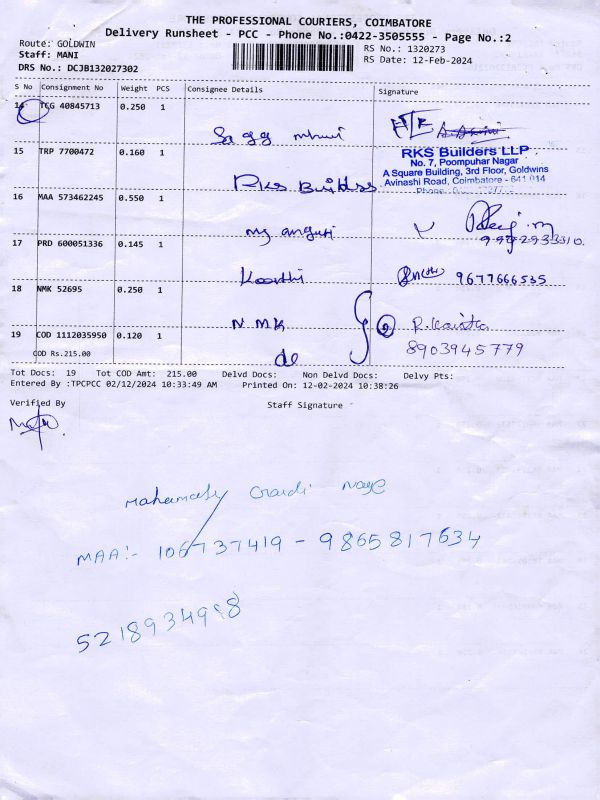 THE PROFESSIONAL COURIERS, COIMBATORE
Delivery Runsheet - PCC - Phone No.:0422-3505555 - Page No.:2
Route: GOLDWIN
Staff: MANI
DRS No.: DCJB132027302
RS No.: 1320273
RS Date: 12-Feb-2024
S No Consignment No Weight PCS Consignee Details Signature
14 TCG 40845713 0.250 1
15 TRP 7700472 0.160 1 RKS Builders
RKS Builders LLP
No. 7, Poompuhar Nagar
A Square Building, 3rd Floor, Goldwins
Avinashi Road, Coimbatore - 641 014
16 MAA 573462245 0.550 1
17 PRD 600051336 0.145 1 9677666535
18 NMK 52695 0.250 1 NMK
19 COD 1112035950 0.120 1 de 8903945779
COD Rs.215.00
Tot Docs: 19 Tot COD Amt: 215.00 Delvd Docs: Non Delvd Docs: Delvy Pts:
Entered By :TPCPCC 02/12/2024 10:33:49 AM Printed On: 12-02-2024 10:38:26
Verified By Staff Signature
MAA:- 106737419 - 9865817634
5218934998